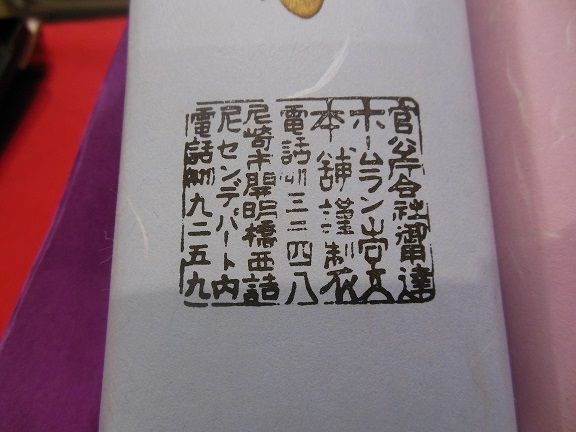 官公庁会社御用達
ホームラン堂
本舗謹製
電話(4)三三四八
尼崎市開明橋西詰
尼センデパート内
電話(4)九二五九